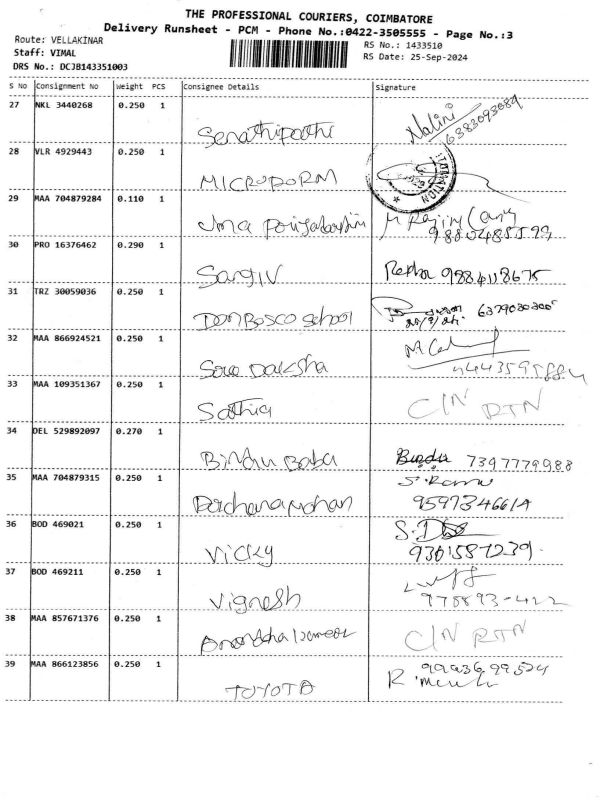 THE PROFESSIONAL COURIERS, COIMBATORE
Delivery Runsheet - PCM - Phone No.:0422-3505555 - Page No.:3
Route: VELLAKINAR
RS No.: 1433510
Staff: VIMAL
RS Date: 25-Sep-2024
DRS No.: DCJB143351003
S No Consignment No Weight PCS Consignee Details Signature
27 NKL 3440268 0.250 1
Nalini 6383093089
Senathipathi
28 VLR 4929443 0.250 1
MICROPORM
29 MAA 704879284 0.110 1
Uma
9880485599
30 PRO 16376462 0.290 1
Sangiv
Rekha 9884118675
31 TRZ 30059036 0.250 1
DonBosco School
32 MAA 866924521 0.250 1
Daksha
33 MAA 109351367 0.250 1
Sathia
C/N RTN
34 DEL 529892097 0.270 1
Bindu Babu
Bindu 7397779988
35 MAA 704879315 0.250 1
9597346614
36 BOD 469021 0.250 1
Vicky
9301587239
37 BOD 469211 0.250 1
Vignesh
38 MAA 857671376 0.250 1
C/N RTN
39 MAA 866123856 0.250 1
TOYOTA